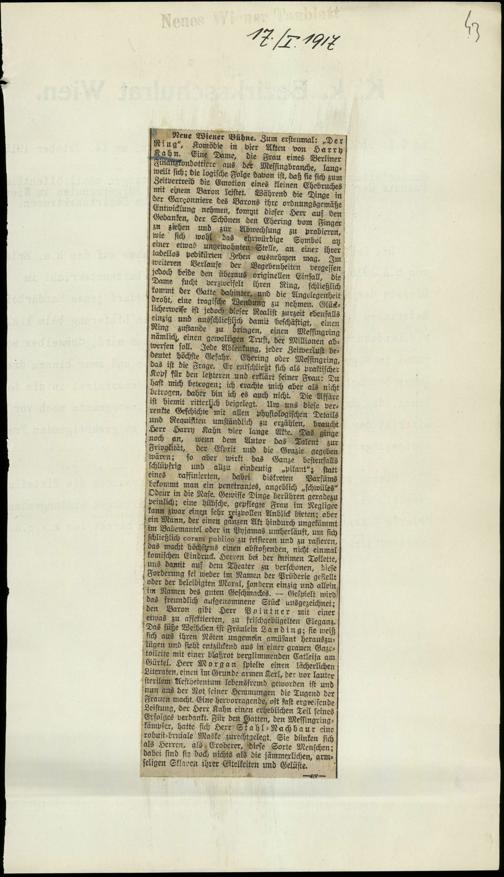 Neues Wiener Tagblatt
17./I. 1917
43
K. k. Bezirksschulrat Wien.
Neue Wiener Bühne. Zum erstenmal: „Der
Ring“, Komödie in vier Akten von Harry
Kahn. Eine Dame, die Frau eines Berliner
Finanzkondottiere aus der Messingbranche, lang-
weilt sich; die logische Folge davon ist, daß sie sich zum
Zeitvertreib die Emotion eines kleinen Ehebruches
mit einem Baron leistet. Während die Dinge in
der Garçonniere des Barons ihre ordnungsgemäße
Entwicklung nehmen, kommt dieser Herr auf den
Gedanken, der Schönen den Ehering vom Finger
zu ziehen und zur Abwechslung zu probieren,
wie sich wohl das ehrwürdige Symbol an
einer etwas ungewohnten Stelle, an einer ihrer
tadellos pedikürten Zehen ausnehmen mag. Im
weiteren Verlaufe der Begebenheiten vergessen
jedoch beide den überaus originellen Einfall, die
Dame sucht verzweifelt ihren Ring, schließlich
kommt der Gatte dahinter, und die Angelegenheit
droht, eine tragische Wendung zu nehmen. Glück-
licherweise ist jedoch dieser Realist zurzeit ebenfalls
einzig und ausschließlich damit beschäftigt, einen
Ring zustande zu bringen, einen Messingring
nämlich, einen gewaltigen Trust, der Millionen ab-
werfen soll. Jede Ablenkung, jeder Zeitverlust be-
deutet höchste Gefahr. Ehering oder Messingring,
das ist die Frage. Er entschließt sich als praktischer
Kopf für den letzteren und erklärt seiner Frau: Du
hast mich betrogen; ich erachte mich aber als nicht
betrogen, daher bin ich es auch nicht. Die Affäre
ist hiemit ritterlich beigelegt. Um uns diese ver-
renkte Geschichte mit allen physiologischen Details
und Requisiten umständlich zu erzählen, braucht
Herr Harry Kahn vier lange Akte. Das ginge
noch an, wenn dem Autor das Talent zur
Frivolität, der Esprit und die Grazie gegeben
wären; so aber wirkt das Ganze bestenfalls
schlüpfrig und allzu eindeutig „pikant“; statt
eines raffinierten, dabei diskreten Parfüms
bekommt man ein penetrantes, angeblich „schwüles“
Odeur in die Nase. Gewisse Dinge berühren geradezu
peinlich; eine hübsche, gepflegte Frau im Negligee
kann zwar einen sehr reizvollen Anblick bieten; aber
ein Mann, der einen ganzen Akt hindurch ungekämmt
im Bademantel oder in Pyjamas umherläuft, um sich
schließlich coram publico zu frisieren und zu rasieren,
das macht höchstens einen abstoßenden, nicht einmal
komischen Eindruck. Herren bei der intimen Toilette,
uns damit auf dem Theater zu verschonen, diese
Forderung sei weder im Namen der Prüderie gestellt
oder der beleidigten Moral, sondern einzig und allein
im Namen des guten Geschmackes. — Gespielt wird
das freundlich aufgenommene Stück ausgezeichnet;
den Baron gibt Herr Pointner mit einer
etwas zu affektierten, zu frischgebügelten Eleganz.
Das süße Weibchen ist Fräulein Landing; sie weiß
sich aus ihren Nöten ungemein amüsant herauszu-
lügen und sieht entzückend aus in einer grauen Gaze-
toilette mit einer blaßrot verglimmenden Catleija am
Gürtel. Herr Morgan spielte einen lächerlichen
Literaten, einen im Grunde armen Kerl, der vor lauter
sterilem Aesthetentum lebensfremd geworden ist und
nun aus der Not seiner Hemmungen die Tugend der
Frauen macht. Eine hervorragende, oft fast ergreifende
Leistung, der Herr Kahn einen erheblichen Teil seines
Erfolges verdankt. Für den Gatten, den Messingring-
kämpfer, hatte sich Herr Stahl-Nachbaur eine
robust-brutale Maske zurechtgelegt. Sie dünken sich
als Herren, als Eroberer, diese Sorte Menschen;
dabei sind sie doch nichts als die jämmerlichen, arm-
seligen Sklaven ihrer Eitelkeiten und Gelüste.